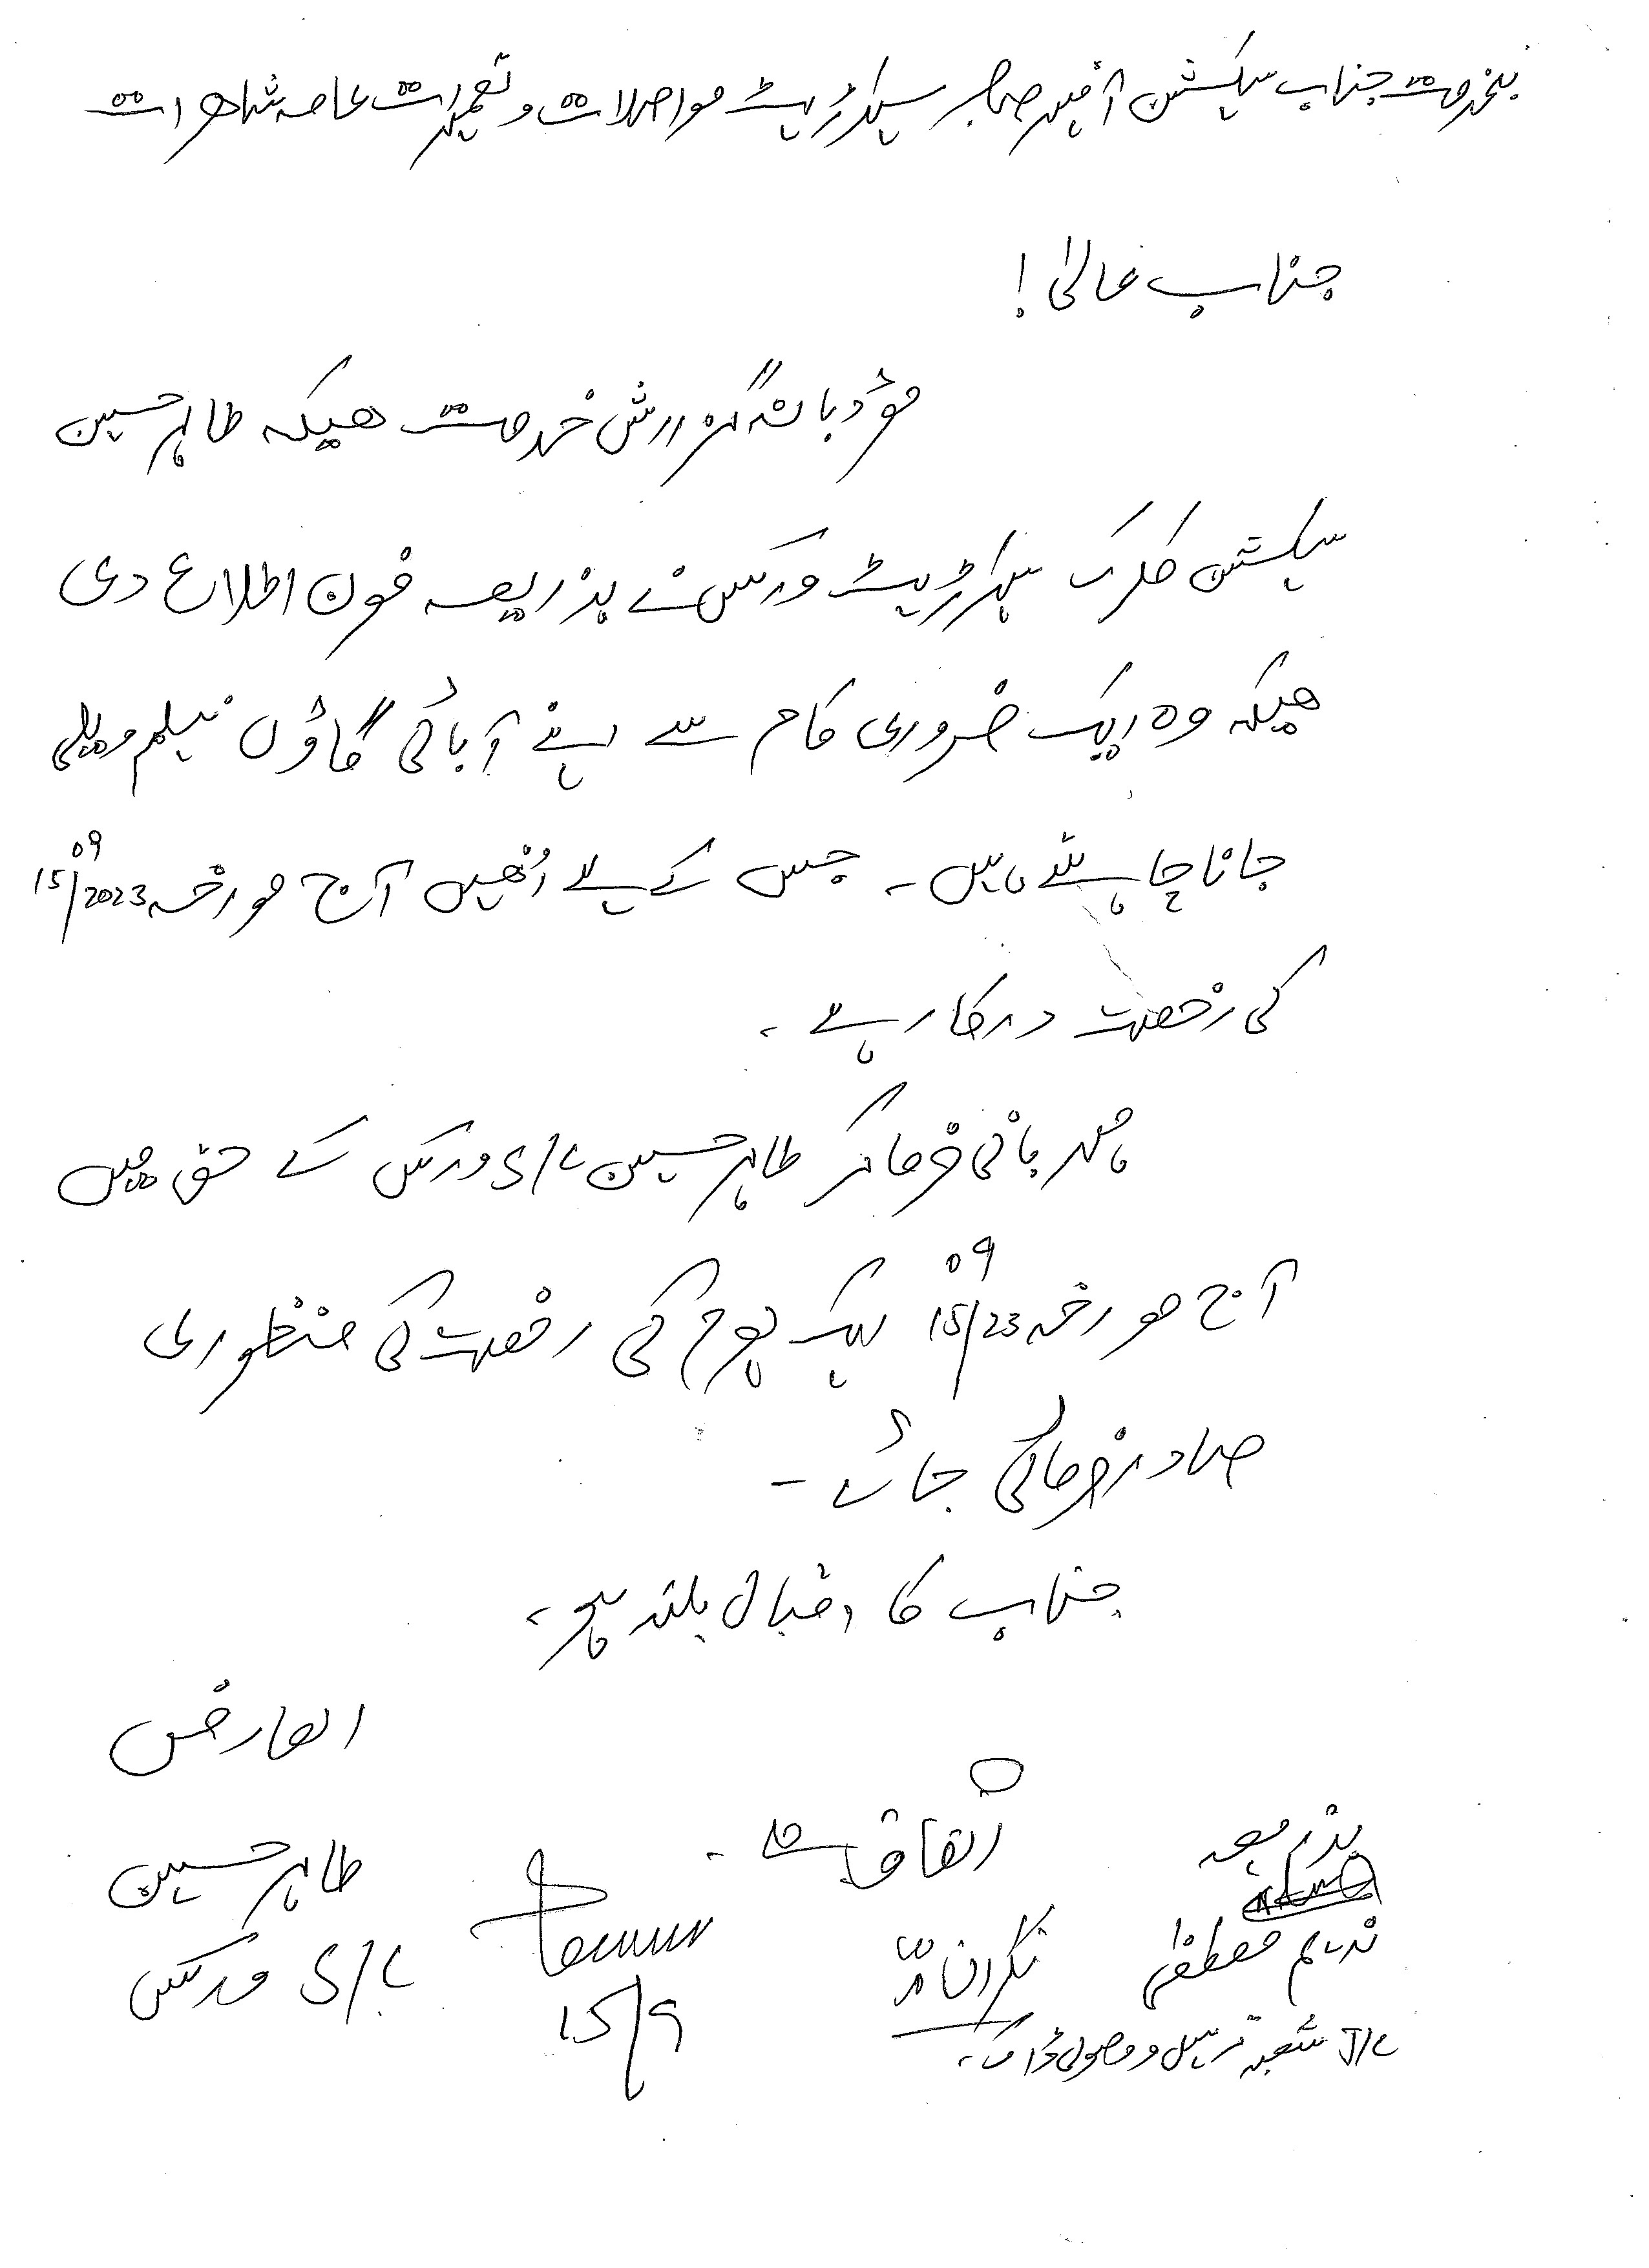 بخدمت جناب سیکشن آفیسر صاحب سیکرٹریٹ مواصلات و تعمیرات عامہ شاھرات
جناب عالیٰ !
مؤدبانہ گزارش خدمت ھیکہ طاہر حسین
سیکشن کلرک سیکرٹریٹ ورکس نے بذریعہ فون اطلاع دی
ھیکہ وہ ایک ضروری کام سے اپنے آبائی گاؤں نیلم ویلی
جانا چاہتے ہیں ۔ جس کے لیے اُنھیں آج مورخہ 15/09/2023
کی رخصت درکار ہے ۔
مہربانی فرما کر طاہر حسین S/C ورکس کے حق میں
آج مورخہ 15/09/23 ایک یوم کی رخصت کی منظوری
صادر فرمائی جائے ۔
جناب کا اقبال بلند ہو ۔
العارض
طاہر حسین
S/C ورکس
اتفاق ہے ۔
15/9
نگران
بذریعہ
ندیم مصطفیٰ
J/C شعبہ ترسیل و وصولی ڈاک ۔